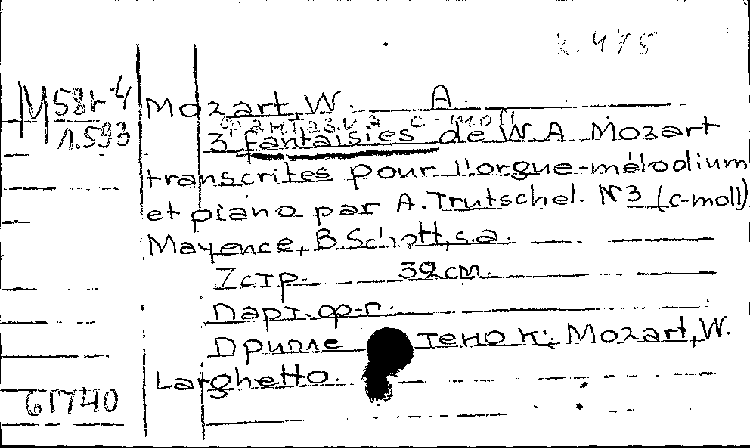 К. 475
М58г-4
Л.593
Mozart, W. A.
Фантазия c-moll
3 fantaisies de W. A. Mozart
transcrites pour l'orgue-mélodium
et piano par A. Trutschel. N°3 (c-moll)
Mayence, B. Schott, s.a.
7 стр. 32 см.
Парт. ф-п.
Припле тено к: Mozart, W.
Larghetto.
61740